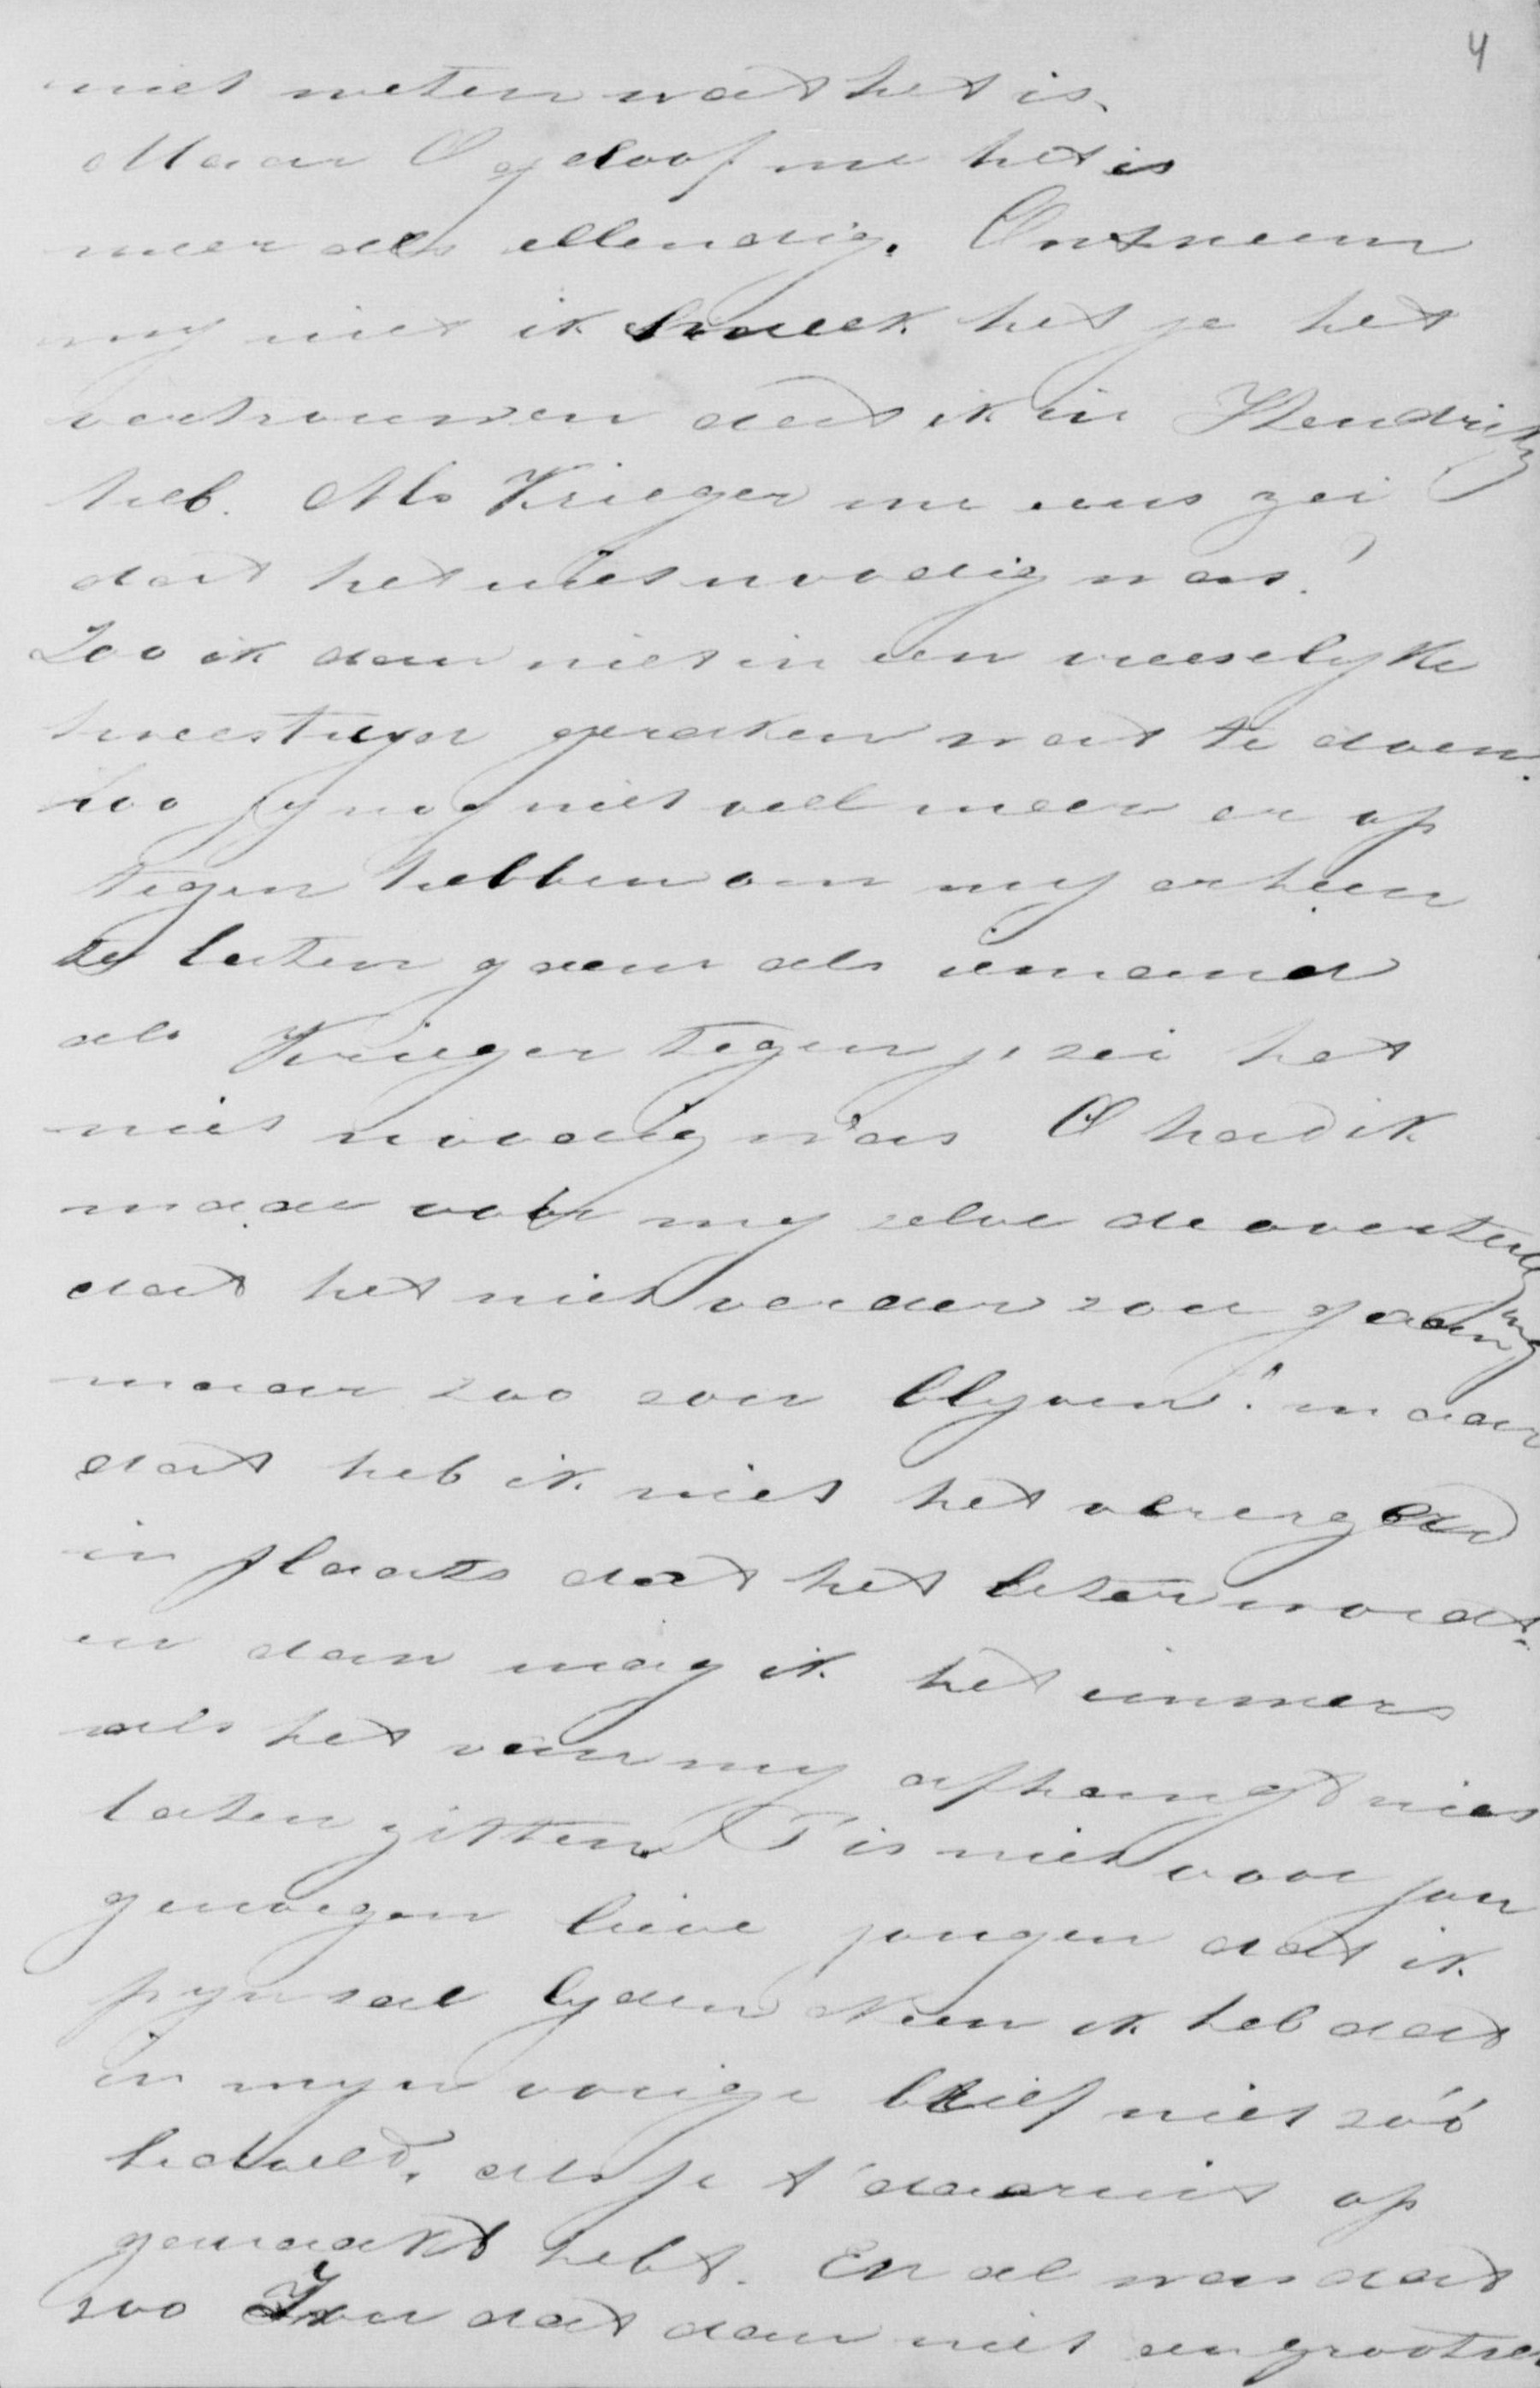 4
niet weten wat het is.
Maar O geloof me het is
meer als ellendig. Ontneem
my niet ik smeek het je het
vertrouwen dat ik in Hendrik
heb. Als Krieger me eens zei
dat het niet noodig was!
Zoo ik dan niet in een vreeselyke
tweestryd geraken wat te doen.
Zoo jy nog niet veel meer er op
tegen hebben om my erheen
te laten gaan als iemand
als Krieger tegen je zei het
niet noodig was O had ik
maar voor my zelve de overtuiging
dat het niet verder zou gaan
maar zoo zou blyven! maar
dat heb ik niet het verergerd
in plaats dat het beter wordt.
en dan mag ik het immers
als het van my afhangt niet
laten zitten. T is niet voor jou
genoegen lieve jongen dat ik
pyn zal lyden Neen ik heb dat
in myn vorige brief niet zóó
bedoeld, als je t' daaruit op
gemaakt hebt. En al was dat
zoo Zou dat dan niet een grootsch